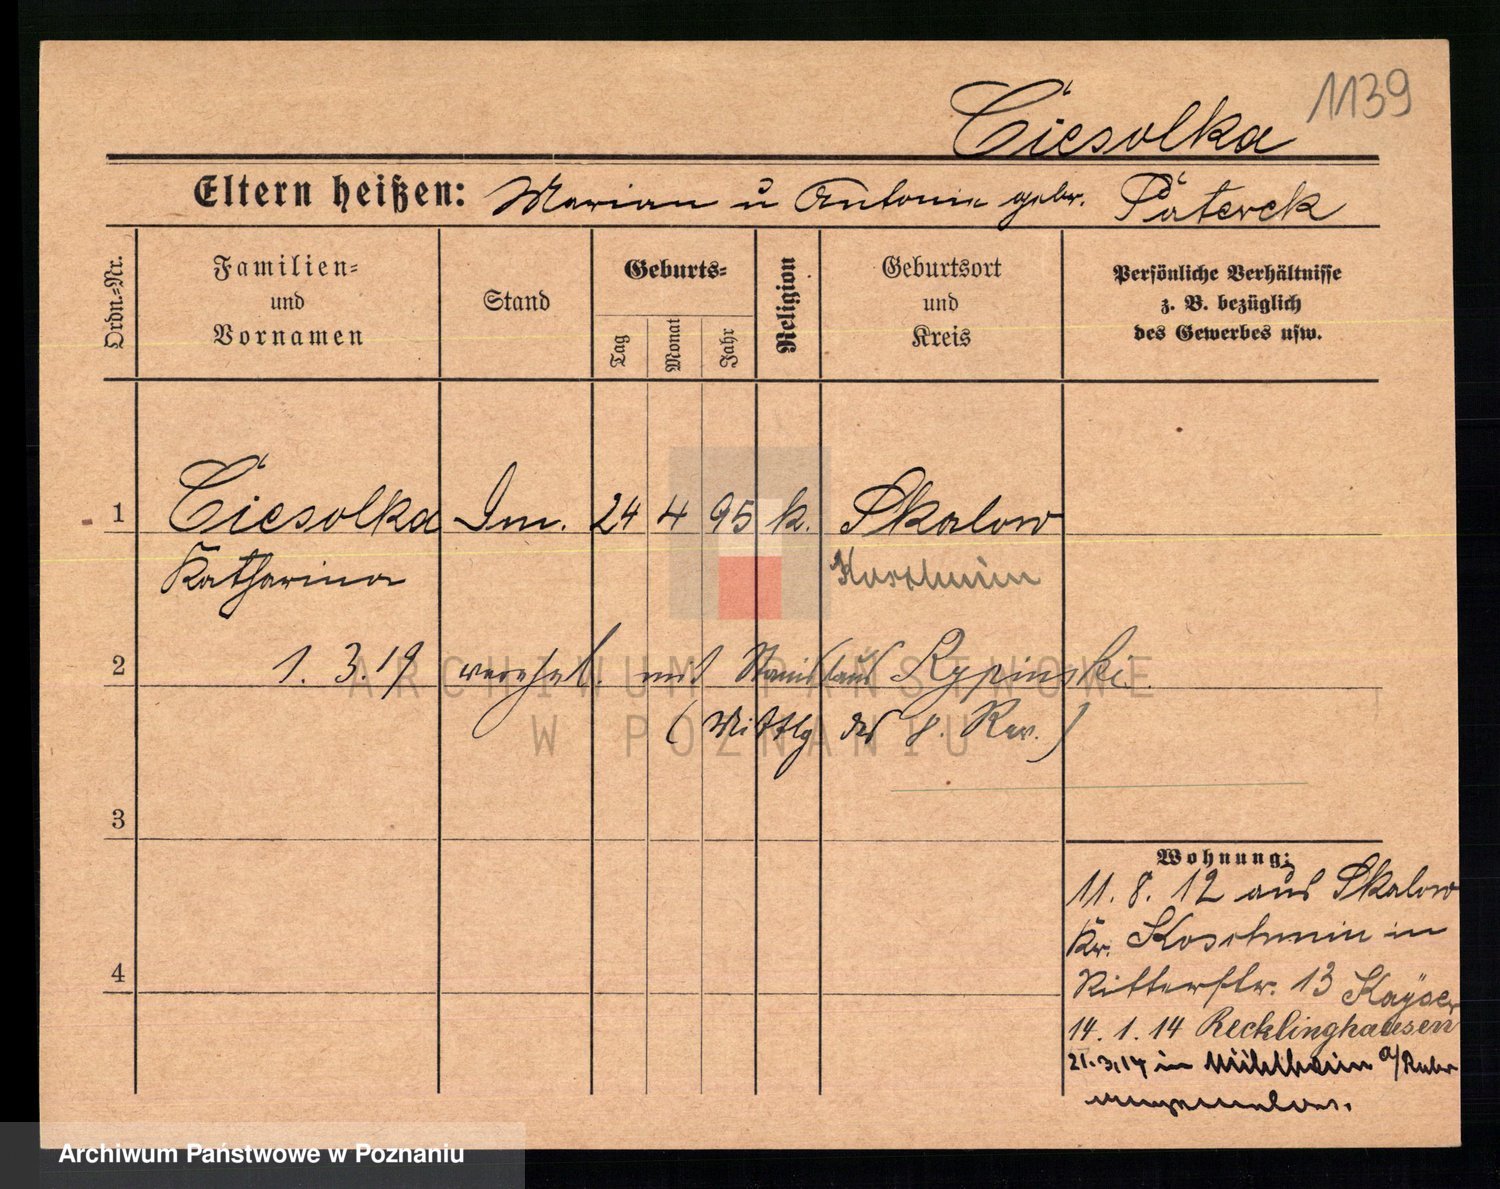 1139
Ciesolka
Eltern heißen: Marian u Antonie gebr. Paterek
Ordn.=Nr.
Familien=
und
Vornamen
Stand
Geburts=
Tag
Monat
Jahr
Religion
Geburtsort
und
Kreis
Persönliche Verhältnisse
z. B. bezüglich
des Gewerbes usw.
1 Ciesolka Im. 24 4 95 k. Skalow
Katharina Koschmin
2 1. 3. 19 verehel. mit Stanislaus Rypinski.
(Mittlg des 8. Rev.)
3
4
Wohnung:
11. 8. 12 aus Skalow
Kr. Koschmin in
Ritterstr. 13 Kayser
14. 1. 14 Recklinghausen
21.3.14 in Mühlheim a/Ruhr
ARCHIWUM PAŃSTWOWE
W POZNANIU
Archiwum Państwowe w Poznaniu